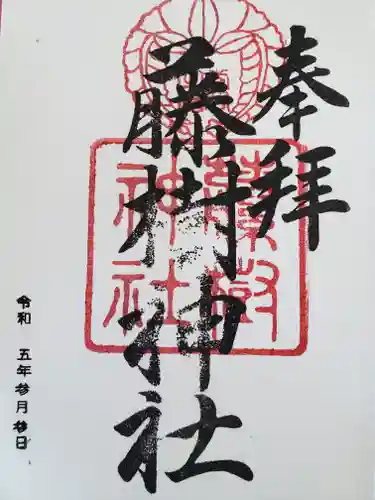 奉拝
藤樹神社
藤樹神社
令和 五年参月参日